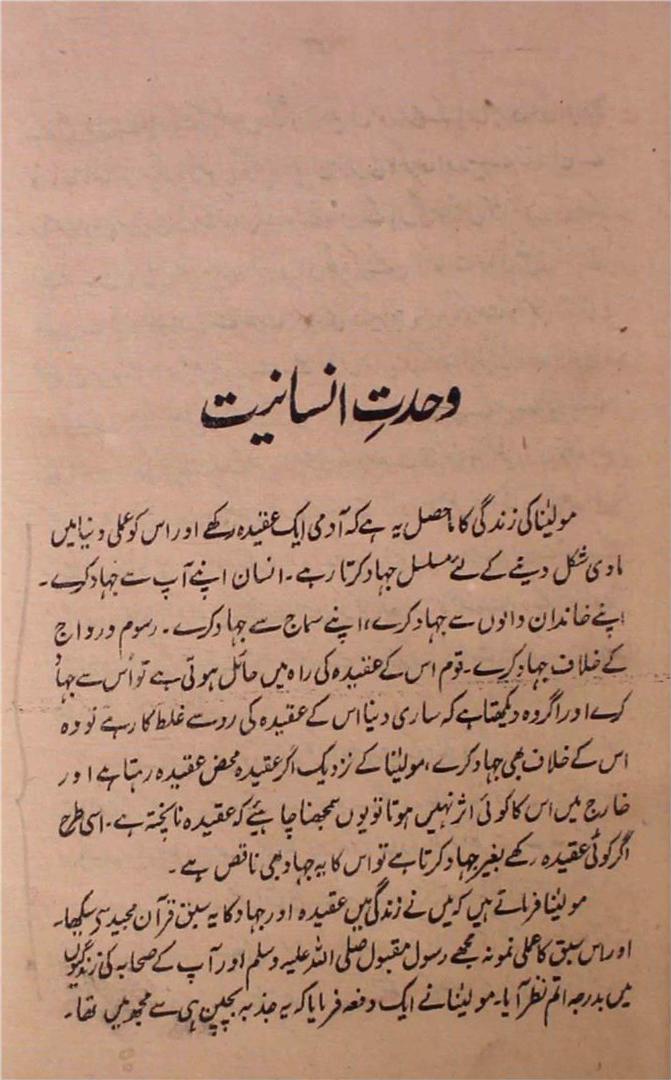 وحدتِ انسانیت
مولینٰا کی زندگی کا ماحصل یہ ہے کہ آدمی ایک عقیدہ رکھے اور اس کو عملی دنیا میں
مادی شکل دینے کے لئے مسلسل جہاد کرتا رہے۔ انسان اپنے آپ سے جہاد کرے۔
اپنے خاندان والوں سے جہاد کرے، اپنے سماج سے جہاد کرے۔ رسوم و رواج
کے خلاف جہاد کرے۔ قوم اس کے عقیدہ کی راہ میں حائل ہوتی ہے تو اُس سے جہاد
کرے اور اگر وہ دیکھتا ہے کہ ساری دنیا اس کے عقیدہ کی رو سے غلط کار ہے تو وہ
اس کے خلاف بھی جہاد کرے، مولینٰا کے نزدیک اگر عقیدہ محض عقیدہ رہتا ہے اور
خارج میں اس کا کوئی اثر نہیں ہوتا تو یوں سمجھنا چاہیئے کہ عقیدہ ناپختہ ہے۔ اسی طرح
اگر کوئی عقیدہ رکھے بغیر جہاد کرتا ہے تو اس کا یہ جہاد بھی ناقص ہے۔
مولینٰا فرماتے ہیں کہ میں نے زندگی میں عقیدہ اور جہاد کا یہ سبق قرآن مجید سے سیکھا۔
اور اس سبق کا عملی نمونہ مجھے رسول مقبول صلی اللہ علیہ وسلم اور آپ کے صحابہ کی زندگیوں
میں بدرجہ اتم نظر آیا۔ مولینٰا نے ایک دفعہ فرمایا کہ یہ جذبہ بچپن ہی سے مجھ میں تھا۔